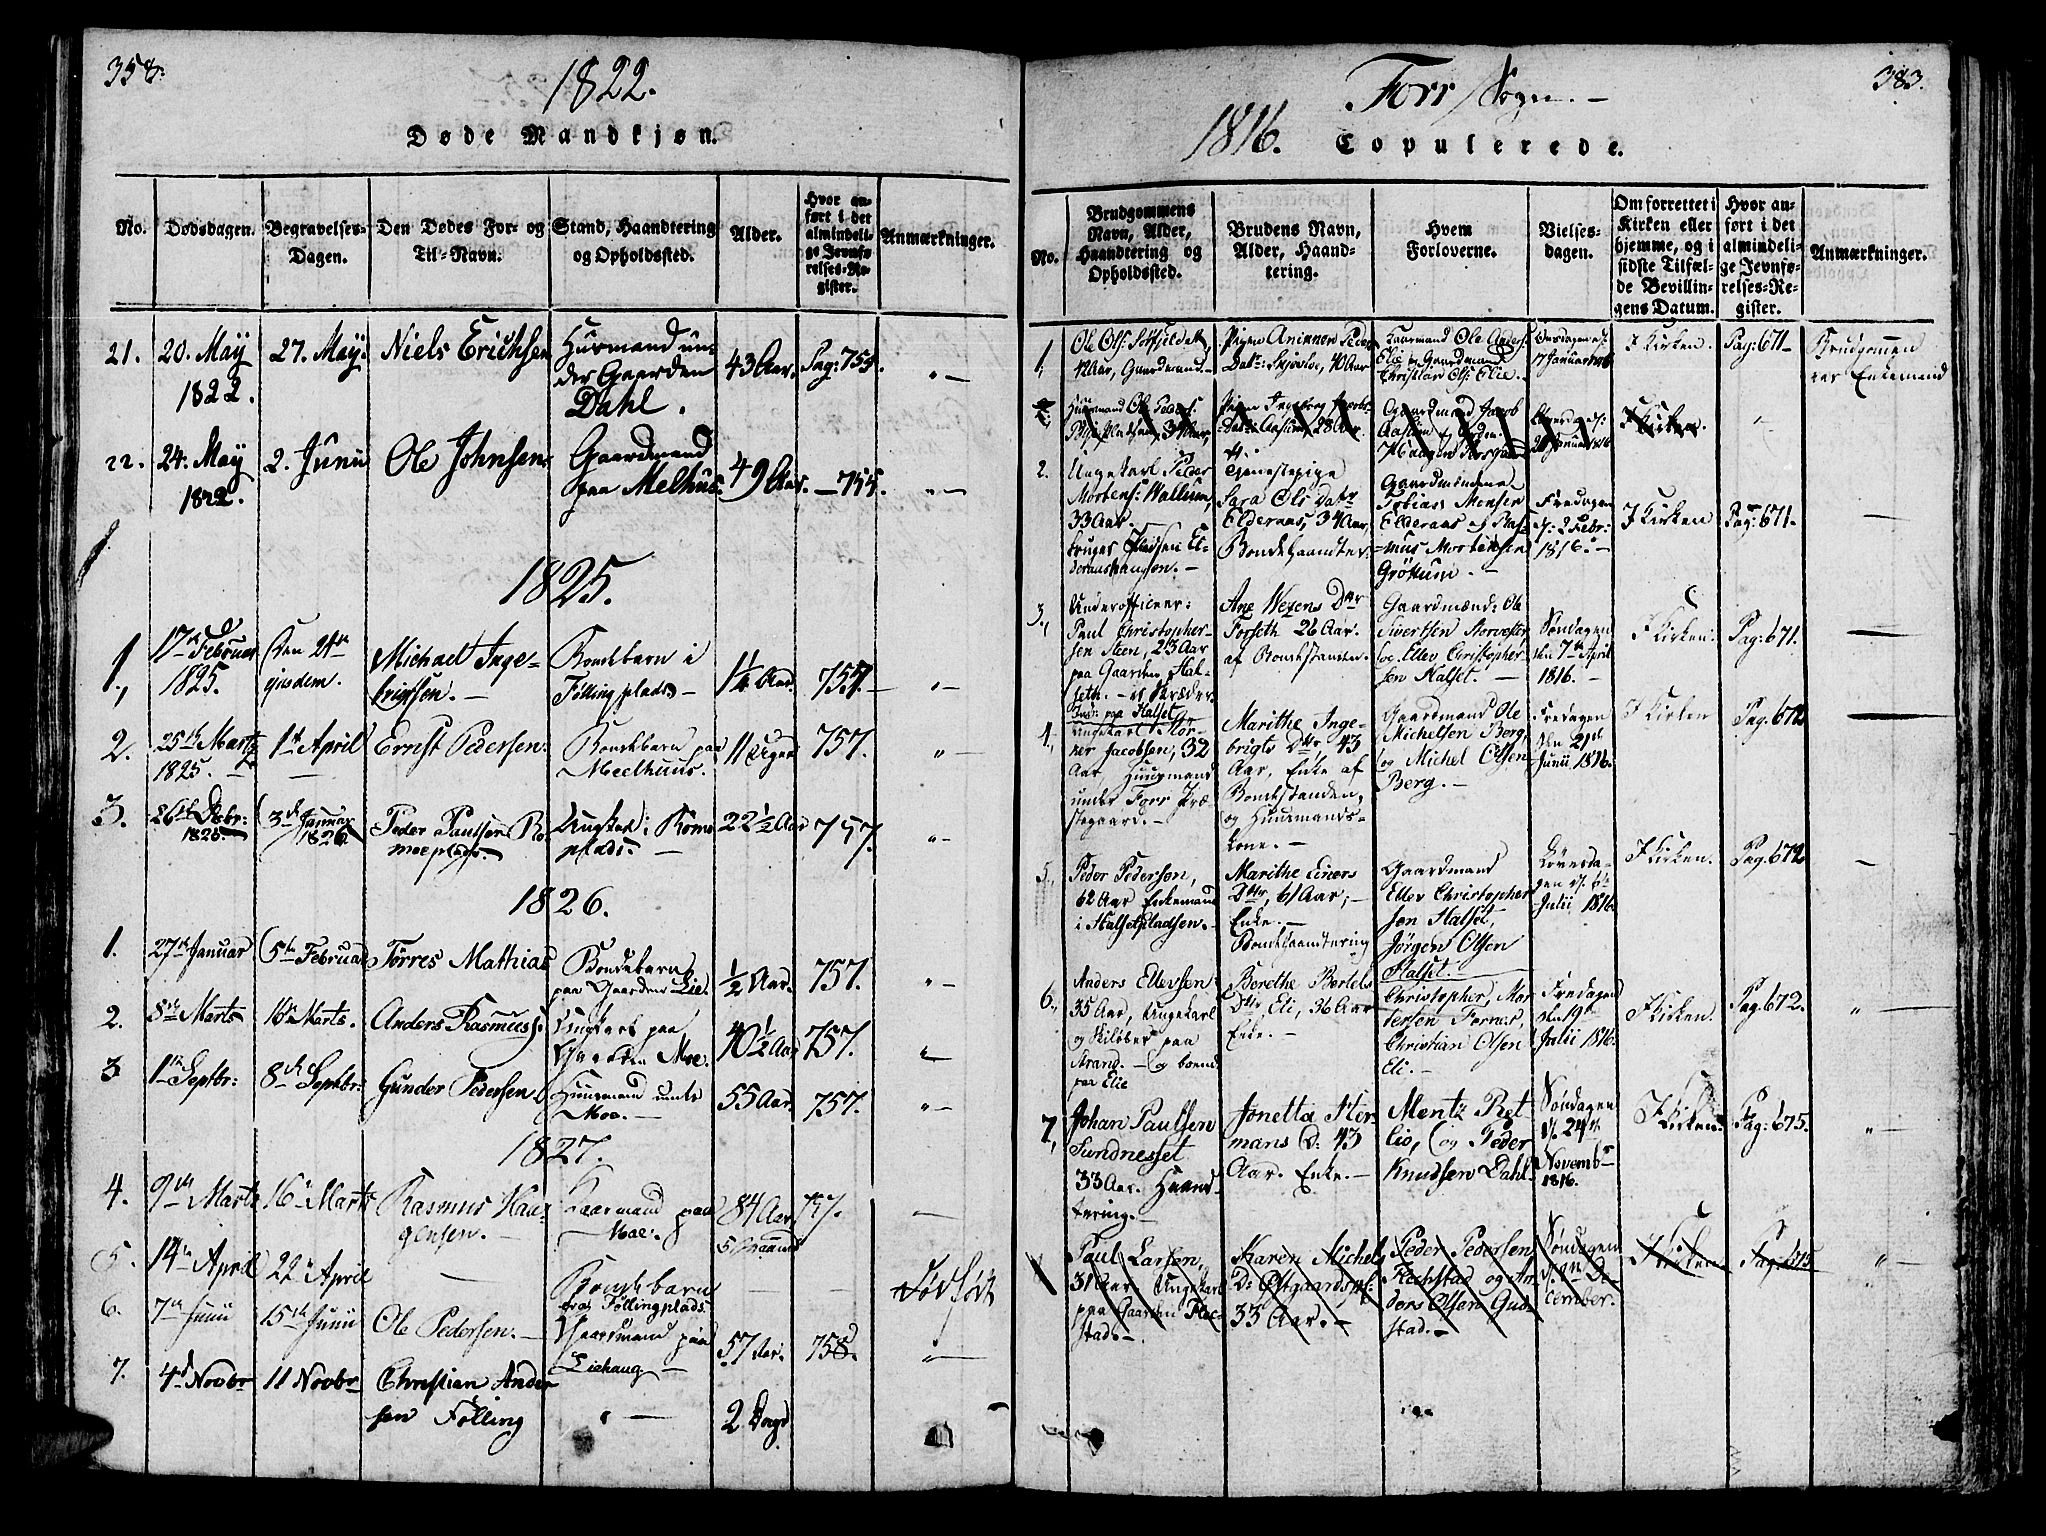 358.
1822.
Døde Mandkjøn.
No.
Dødsdagen.
Begravelses-
Dagen.
Den Dødes For- og
Til-Navn.
Stand, Haandtering
og Opholdssted.
Alder.
Hvor an-
ført i det
almindeli-
ge Jevnfø-
relses-Re-
gister.
Anmærkninger.
21.
20. May
1822.
27. May.
Niels Erichsen
Huusmand un-
der Gaarden
Dahl.
43 Aar.
Pag: 754.
"—
22.
24. May
1822.
2. Junii
Ole Johnsen
Gaardmand
paa Melhus.
49 Aar.
— 755.
"—
1825.
1.
17de Februar
1825.
Den 24de
ejusdem.
Michael Inge-
brigtsen. —
Bondebarn i
Føllingplads —
1¼ Aar.
757. —
"—
2.
25de Marts
1825. —
1te April
—
Ernst Pedersen.
Bondebarn paa
Meelhuus.
11 Uger
757.
"—
3.
26de Decbr:
1825
3de Januar
1826
Peder Paulsen Ro-
moeplads.
Ungkarl i Romo
plads. —
22½ Aar
757.
"—
1826.
1.
27de Januar
5te Februar
Tørres Mathias
Bondebarn
paa Gaarden Lie.
½ Aar.
757.
"—
2.
8de Marts
16de Marts.
Anders Rasmuss:
Ungkarl paa
Gaarden Moe.
40½ Aar
757.
"—
3
1te Septbr:
8de Septbr:
Gunder Pedersen
Huusmand under
Moe. —
55 Aar.
757.
"—
1827.
4.
9de Marts
16de Marts
Rasmus Haa-
gensen. —
Gaardmand paa
Moe.
84 Aar
757.
—
5.
14de April
22de April
—
Bondebarn
fra Føllingplads.
—
—
Dødfødt
6.
7de Junii
15de Junii
Ole Pedersen. —
Gaardmand paa
Liehaug —
57 Aar.
758.
"—
7.
4de Novbr
11 Novbr
Christian Ander
sen Følling
"—
2 Dage
Forr Sogn. —
383.
1816. Copulerede.
No.
Brudgommens
Navn, Alder,
Haandtering og
Opholdssted.
Brudens Navn,
Alder, Haand-
tering.
Hvem
Forloverne.
Vielses-
dagen.
Om forrettet i
Kirken eller
hjemme, og i
sidste Tilfæl-
de Bevillin-
gens Datum.
Hvor an-
ført i det
almindeli-
ge Jevnfø-
relses-Re-
gister.
Anmærkninger.
1,
42 Aar, Gaardmand —
40 Aar
Gaardmand Ole Anders:
Elie og Gaardmand
Christian Ols: Elie.
17 Januar 1816
I Kirken.
Pag: 671 —
Brudgommen
var Enkemand
Huusmand Ole Peders:
34 Aar,
Pigen Ingeborg Jacobs
Datt: Aaslum, 28 Aar.
Gaardmand Jacob
I Kirken.
"
2.
Ungekarl Peder
Mortens: Wallum,
33 Aar.
bruger Pladsen El-
deraashaugen. —
Tjenestepige
Sara Ols Datr
Elderaas, 34 Aar,
Bondehaandter:
Gaardmændene
Tobias Monsen
Elderaas og Ras-
mus Mortensen
Grøttum. —
Fredagen
d. 2 Febr:
1816. —
I Kirken
Pag: 671.
—
3.,
Underofficeer:
Paul Christopher-
sen Steen, 23 Aar
paa Gaarden Hal-
seth. —
paa Halset
Ane Wexens Dttr
Forseth 26 Aar.
af Bondestanden.
Gaardmænd: Ole
Sivertsen
og Ellev Christopher-
sen Halset. —
Søndagen
den 7de April
1816. —
I Kirken.
Pag: 671.
—
4.,
Ungekarl Stor-
ker Jacobsen, 32
Aar Huusmand
under Forr Præ-
stegaard. —
Marithe Inge-
brigts Dttr, 43
Aar, Enke af
Bondestanden,
og Huusmands-
kone. —
Gaardmand Ole
Michelsen Berg,
og Michel Olsen
Berg. —
Fredagen
den 21de
Junii 1816.
I Kirken
Pag. 672
—
5.,
Peder Pedersen,
62 Aar Enkemand
i Halsetpladsen. —
Marithe Einers
Dttr, 61 Aar, —
Enke. —
Bondehaandtering
Gaardmand
Ellev Christopher
sen Halset,
Jørgen Olsen
Halset. —
Løverda-
gen d. 6te
Julii 1816.
I Kirken.
Pag. 672
—
6.,
Anders Ellevsen
35 Aar, Ungekarl
og Skiløber paa
Strand. —
paa Elie
Berethe Bertels
Dttr, Eli, 36 Aar
Enke. —
Christopher Mor
tensen Fornes,
Christian Olsen
Eli. —
Fredagen
den 19de
Julii 1816.
I Kirken.
Pag. 672.
" —
7,
Johan Paulsen
Sundnesset
33 Aar. Haand-
tering. —
Jonetta Her-
mans D: 43
Aar. Enke. —
Mentz Ret
lio, og Peder
Knudsen Dahl.
Søndagen
d. 24de
Novembr
1816.
I Kirken.
Pag: 675.
" —
Paul Larsen,
31 Aar Ungekarl
paa Gaarden Flec-
stad. —
Karen Michels
D: Østgaardspl:
33 Aar. —
Peder Pedersen
Flechstad og An
ders Olsen Gud-
stad. —
Søndagen
De-
cember.
I Kirken
Pag. 675
" —